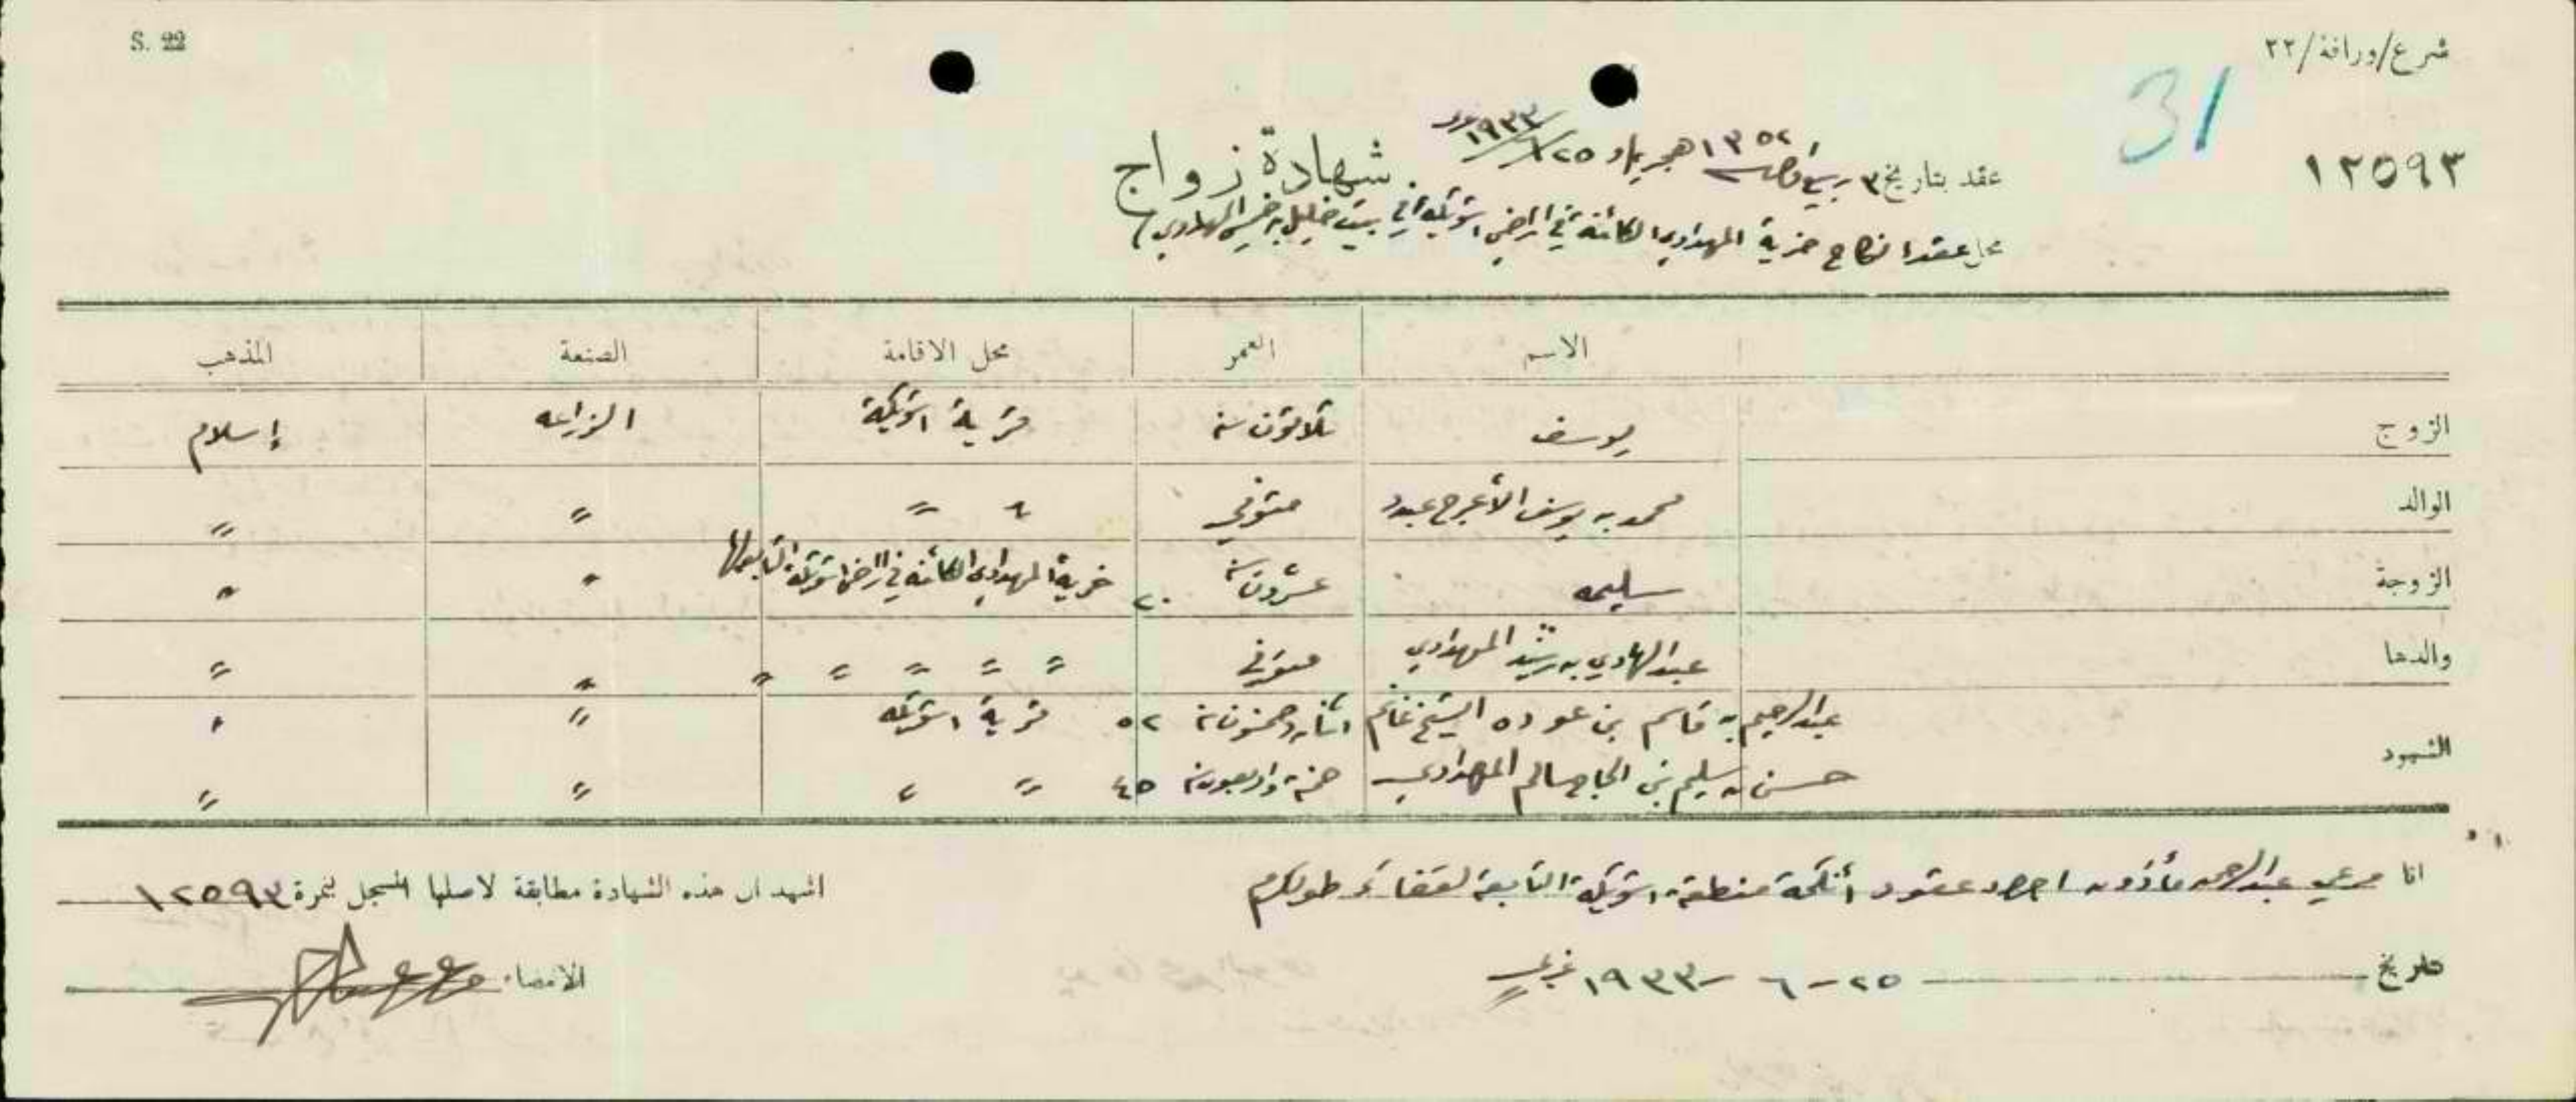 S. 22
شرع/وراقة/٢٢
31
١٢٥٩٣
شهادة زواج
عقد بتاريخ ٣ ربيع اول سنة ١٣٥٢ هجرية و ٢٥ / ٦ / ١٩٣٣
محل عقد النكاح خربة المهداوي الكائنة في اراضي اشويكة في بيت خليل بن خميس المهداوي
الاسم العمر محل الاقامة الصنعة المذهب
الزوج يوسف ثلاثون سنة قرية اشويكة الزراعه إسلام
الوالد محمد بن يوسف الأعرج عبدد متوفي " " " "
الزوجة سليمه عشرون سنة ٢٠ خربة المهداوي الكائنه في اراضي اشويكة التابعه لها " "
والدها عبد الهادي بن رشيد المهداوي متوفي " " " " " " "
الشهود عبد الرحيم بن قاسم بن عوده الشيخ غانم اثنان وخمسون سنة ٥٢ قرية اشويكه " "
حسن بن سليم بن الحاج سالم المهداوي خمسة واربعون سنة ٤٥ " " " "
انا مرعي عبد الرحمن مأذون اجراء عقود أنكحة منطقة اشويكة التابعة لقضاء طولكرم
اشهد ان هذه الشهادة مطابقة لاصلها المسجل بنمرة ١٢٥٩٣
تاريخ ٢٥ - ٦ - ١٩٣٣
الامضاء